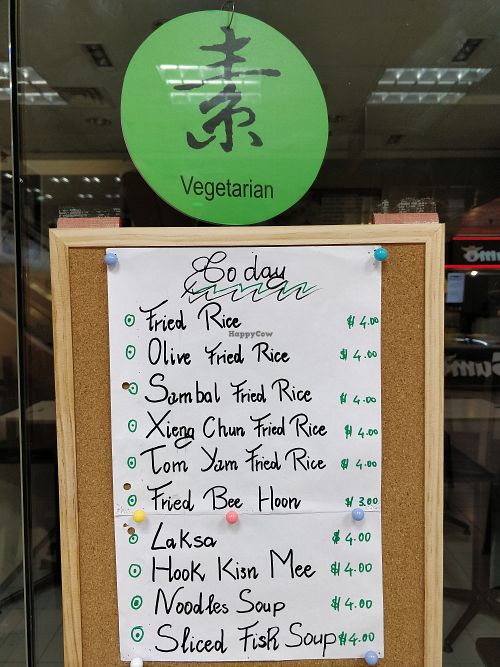 素
Vegetarian
Today
Fried Rice $4.00
HappyCow
Olive Fried Rice $4.00
Sambal Fried Rice $4.00
Xieng Chun Fried Rice $4.00
Tom Yam Fried Rice $4.00
Fried Bee Hoon $3.00
Laksa $4.00
Hook Kisn Mee $4.00
Noodles Soup $4.00
Sliced Fish Soup $4.00